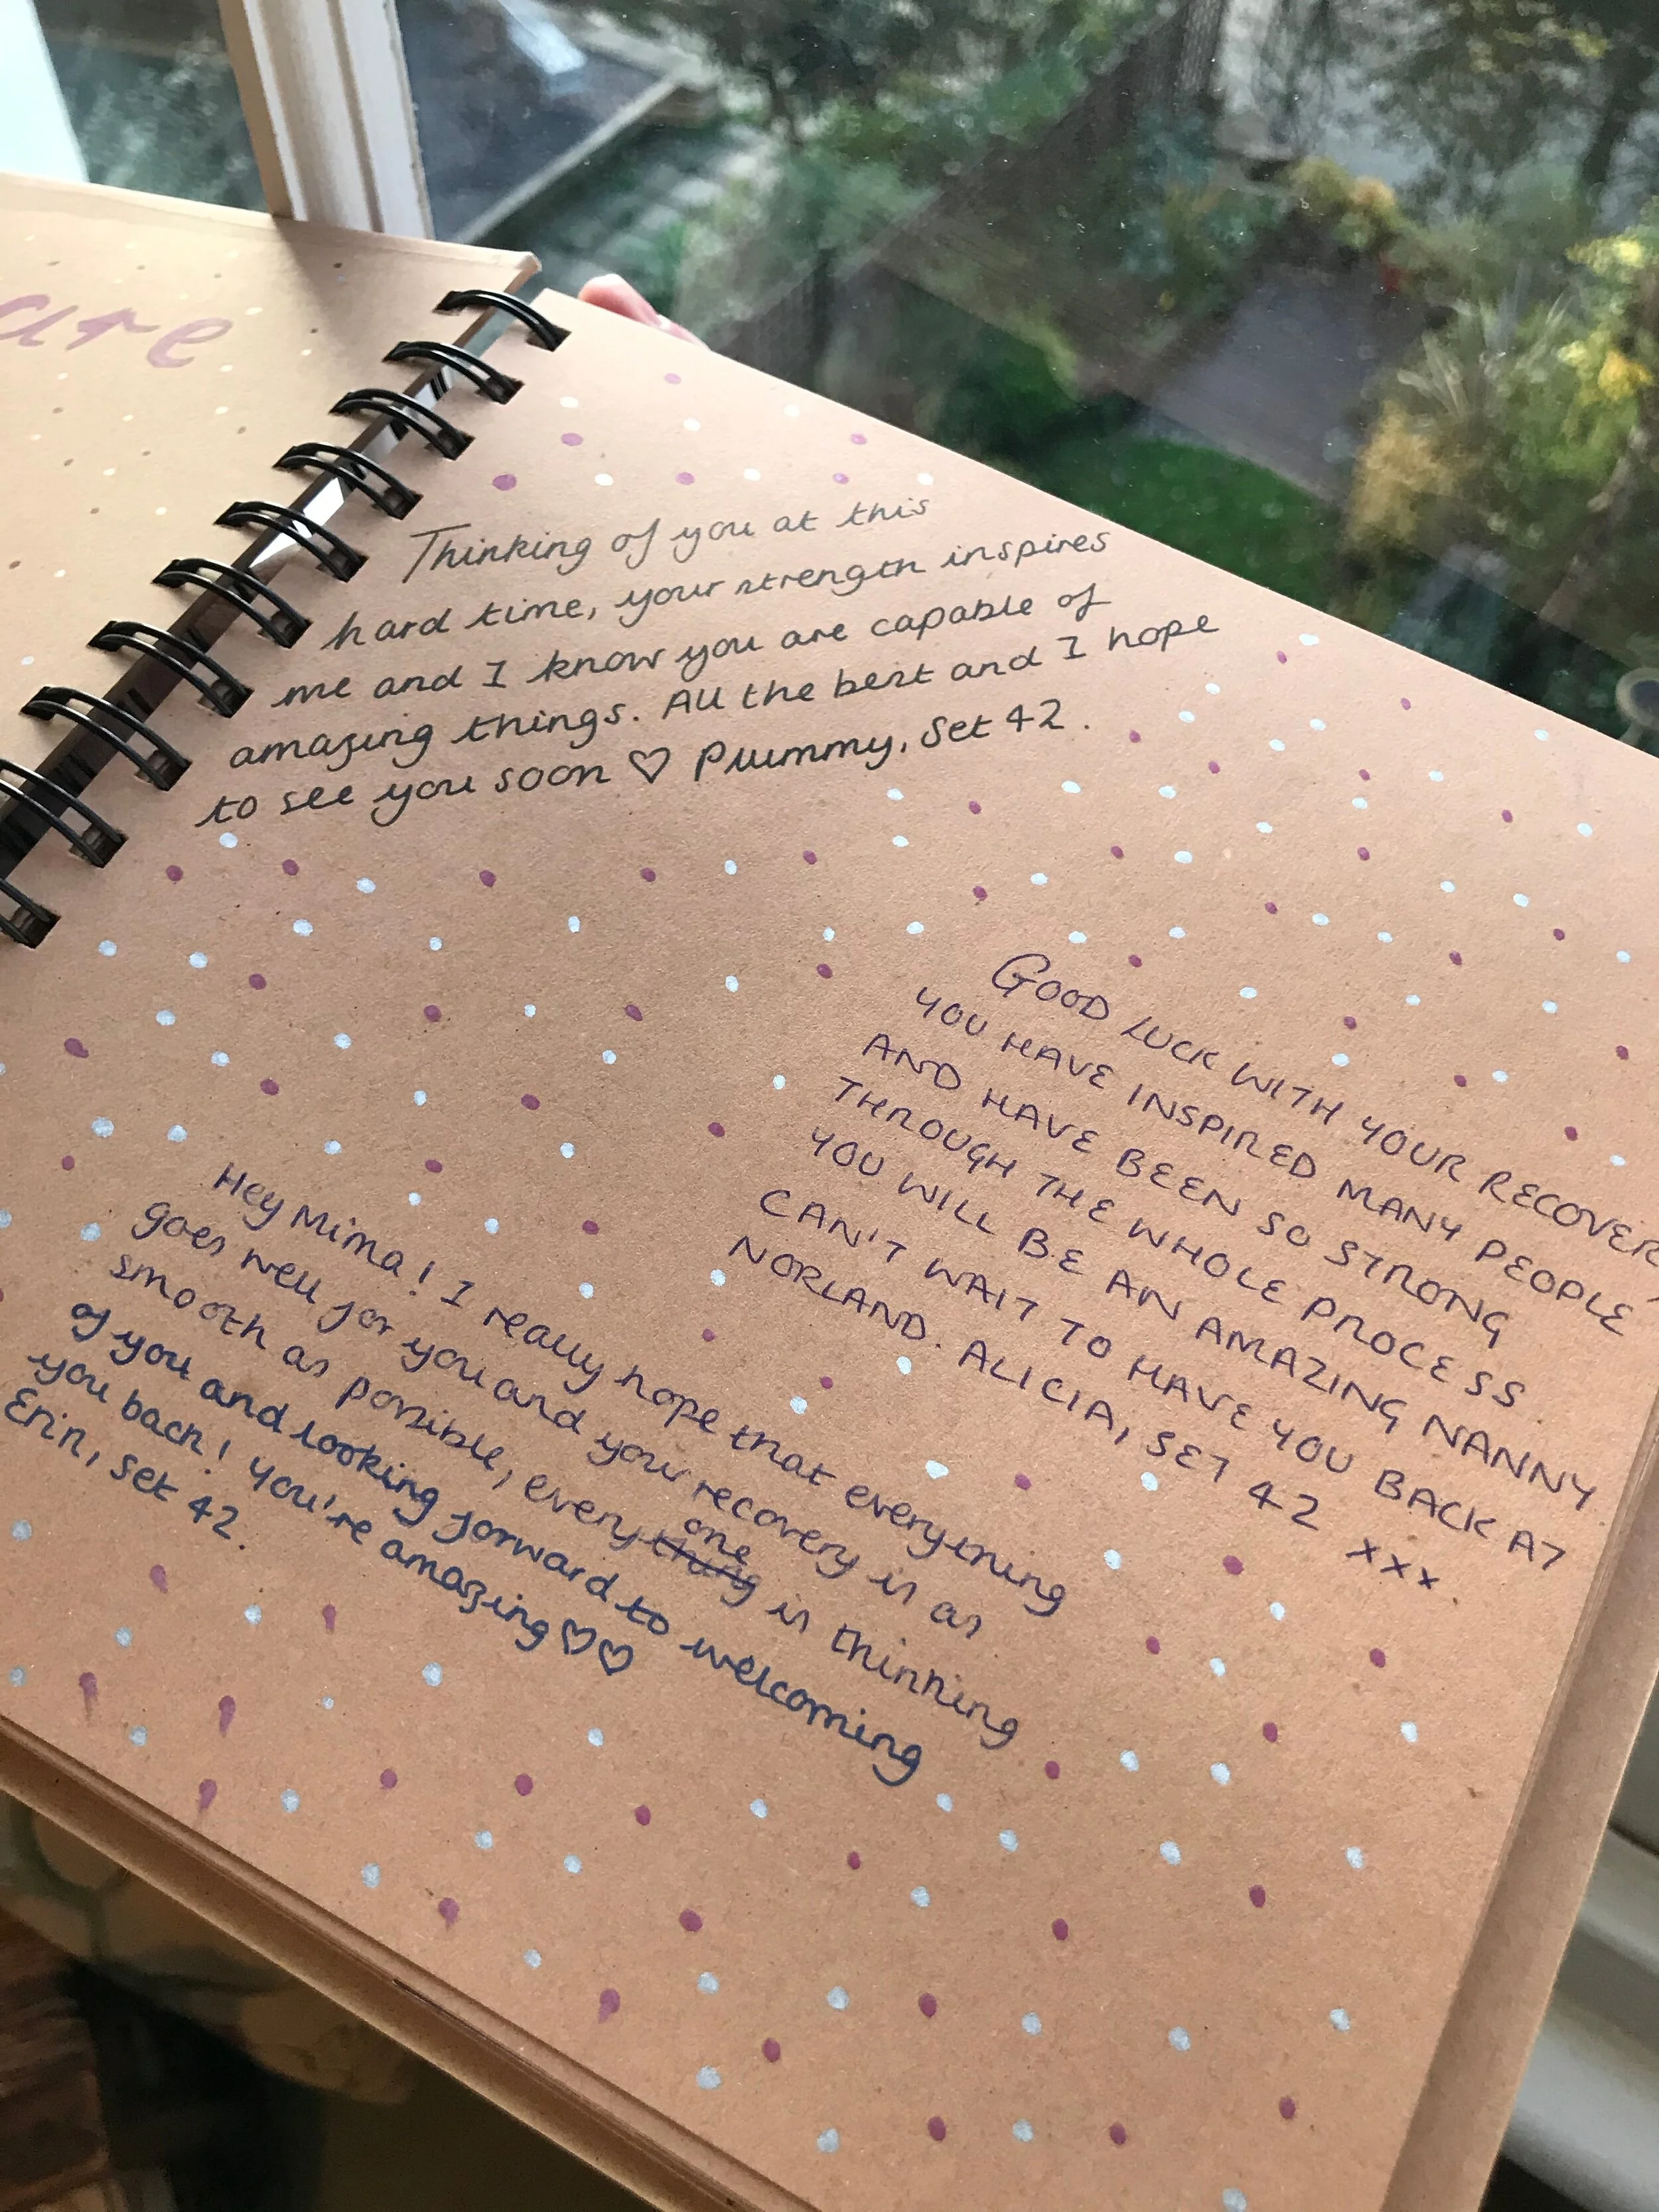 are
Thinking of you at this
hard time, your strength inspires
me and I know you are capable of
amazing things. All the best and I hope
to see you soon ♡ Plummy, Set 42.
GOOD LUCK WITH YOUR RECOVERY
YOU HAVE INSPIRED MANY PEOPLE
AND HAVE BEEN SO STRONG
THROUGH THE WHOLE PROCESS.
YOU WILL BE AN AMAZING NANNY
CAN'T WAIT TO HAVE YOU BACK AT
NORLAND. ALICIA, SET 42 xxx.
Hey Mima! I really hope that everything
goes well for you and your recovery is as
smooth as possible, everything one is thinking
of you and looking forward to welcoming
you back! You're amazing ♡♡
Erin, Set 42.